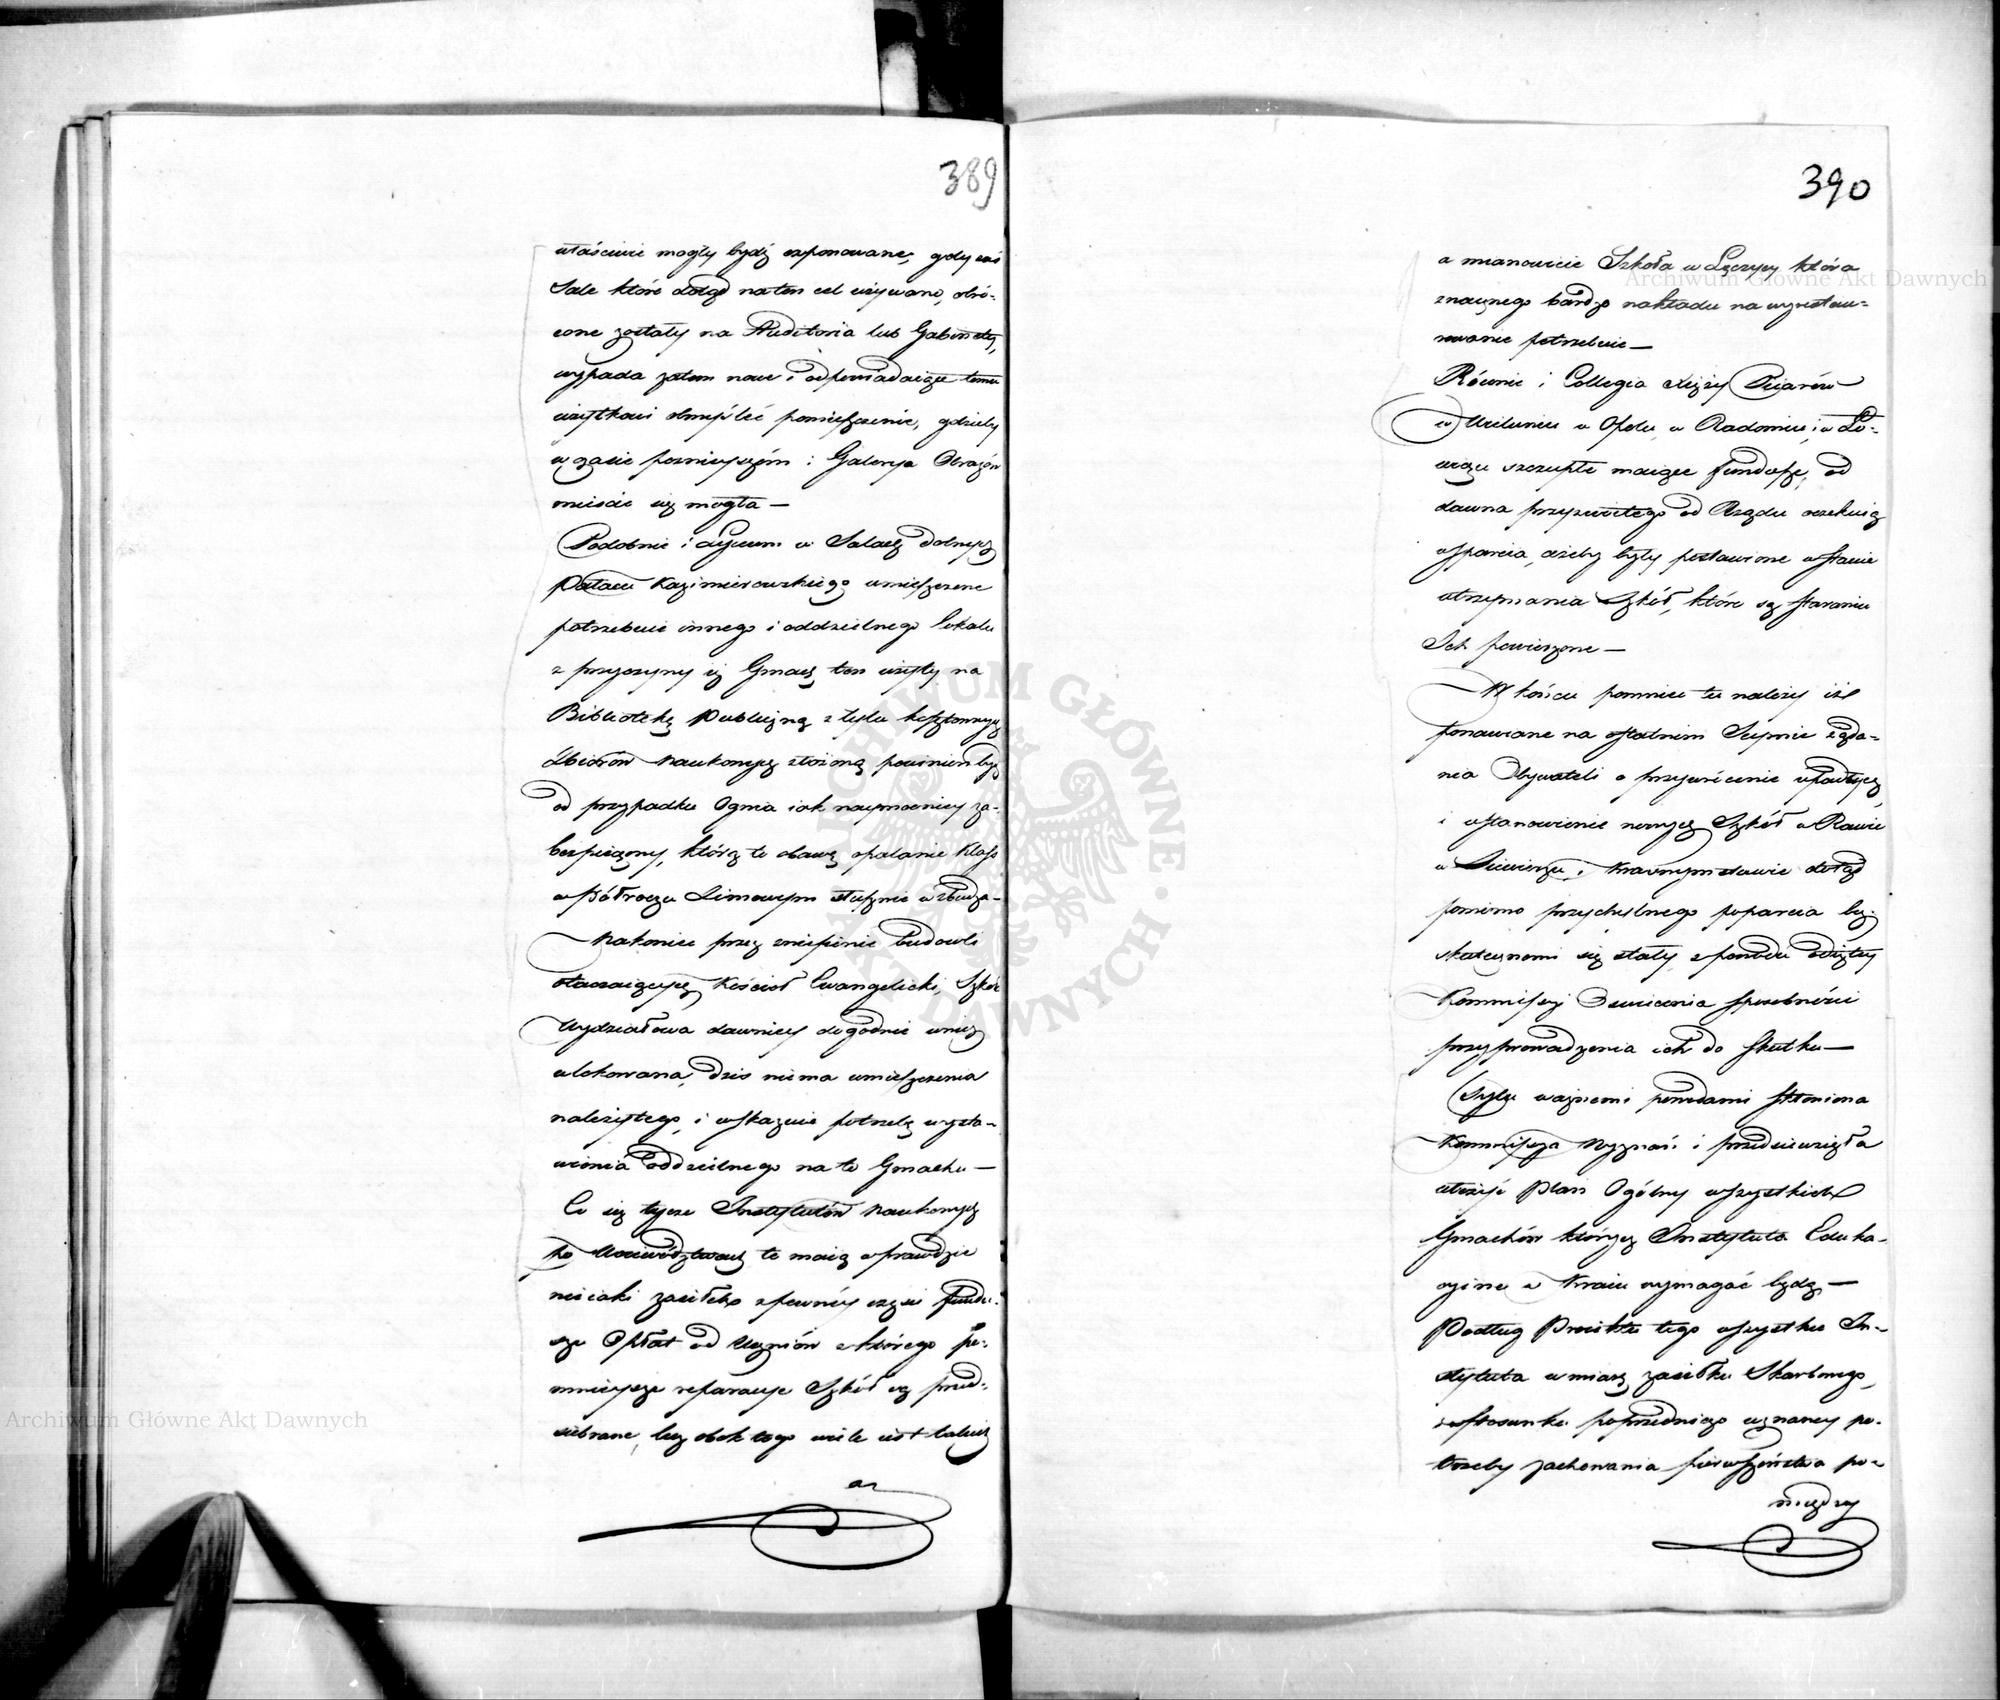 389
właściwie mogły bydź exponowane, gdy zaś
Sale które dotąd na ten cel używane, obró-
cone zostały na Auditoria lub Gabinety,
wypada zatem nowe i odpowiadaiące temu
użytkowi obmyśleć pomieszczenie, gdzieby
w czasie poznieyszym i Galerya Obrazów
mieścić się mogła —
Podobnie i Lyceum w Salach dolnych
Pałacu Kazimierowskiego umieszczone
potrzebuie innego i oddzielnego lokalu
z przyczyny iż Gmach ten użyty na
Bibliotekę Publiczną z tylu kosztownych
Zbiorów Naukowych złożoną powinien być
od przypadku Ognia iak naymocniey za-
bezpieczony, którą to obawę opalanie Klass
w półroczu Zimowym słusznie wzbudza —
Nakoniec przez zniesienie budowli
otaczaiących Kościół Ewangelicki, Szkoła
Wydziałowa dawniey dogodnie w nich
ulokowana, dziś niema umieszczenia
należytego, i wskazuie potrzebę wysta-
wienia oddzielnego na to Gmachu —
Co się tycze Instytutów Naukowych
po Woiewództwach te maią wprawdzie
nieiaki zasiłek z pewnéy części fundu-
szu Opłat od Uczniów z którego po-
mnieysze reparacye Szkół są przed-
siebrane, lecz obok tego wiele iest takich
a
390
a mianowicie Szkoła w Łęczycy która
znacznego bardzo nakładu na wyrestau-
rowanie potrzebuie —
Równie i Collegia Xięży Piiarów
w Wieluniu w Opolu, w Radomiu, i w Ło-
wiczu szczupłe maiące fundusze, od
dawna przyzwoitego od Rządu oczekuią
wsparcia, ażeby były postawione w stanie
utrzymania Szkół, które są staraniu
Ich powierzone —
W końcu pomnieć tu należy iż
ponawiane na ostatnim Seymie żąda-
nia Obywateli o przywrócenie upadłych
i ustanowienie nowych Szkół w Rawie
w Siewierzu, i Krasnymstawie dotąd
pomimo przychylnego poparcia bez-
skutecznemi się stały, z powodu odjętey
Kommissyi Oswiecenia sposobności
przyprowadzenia ich do skutku —
Tylu ważnemi powodami skłoniona
Kommissya Wyznań i przedsiewzięła
ułożyć Plan Ogólny wszystkich
Gmachów których Instytuta Eduka-
cyine w Kraiu wymagać będą —
Podług Proiektu tego wszystkie In-
stytuta w miarę zasiłku Skarbowego,
i w stosunku poprzedniego uznaney po-
trzeby zachowania pierwszeństwa po-
między
Archiwum Główne Akt Dawnych
Archiwum Główne Akt Dawnych
ARCHIWUM GŁÓWNE AKT DAWNYCH